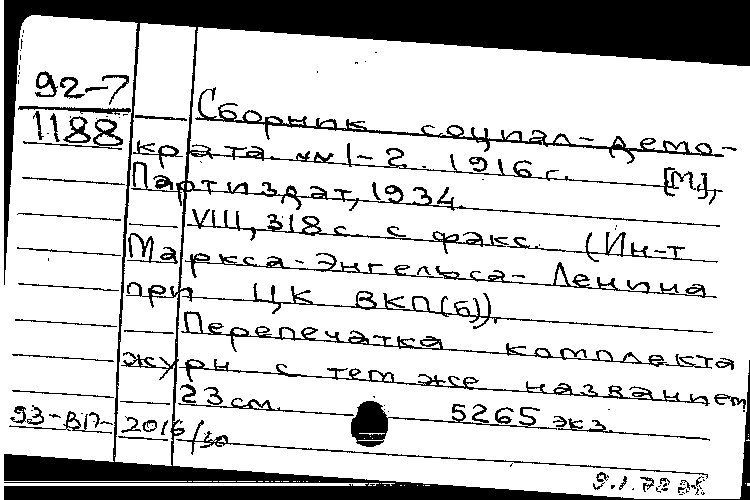 92-7
1188
Сборник социал-демо-
крата. №№ 1-2. 1916 г. [М],
Партиздат, 1934.
VIII, 318 с. с факс. (Ин-т
Маркса-Энгельса-Ленина
при ЦК ВКП(б)).
Перепечатка комплекта
журн. с тем же названием
23 см. 5265 экз.
93-ВП-2016/30
9.1.72